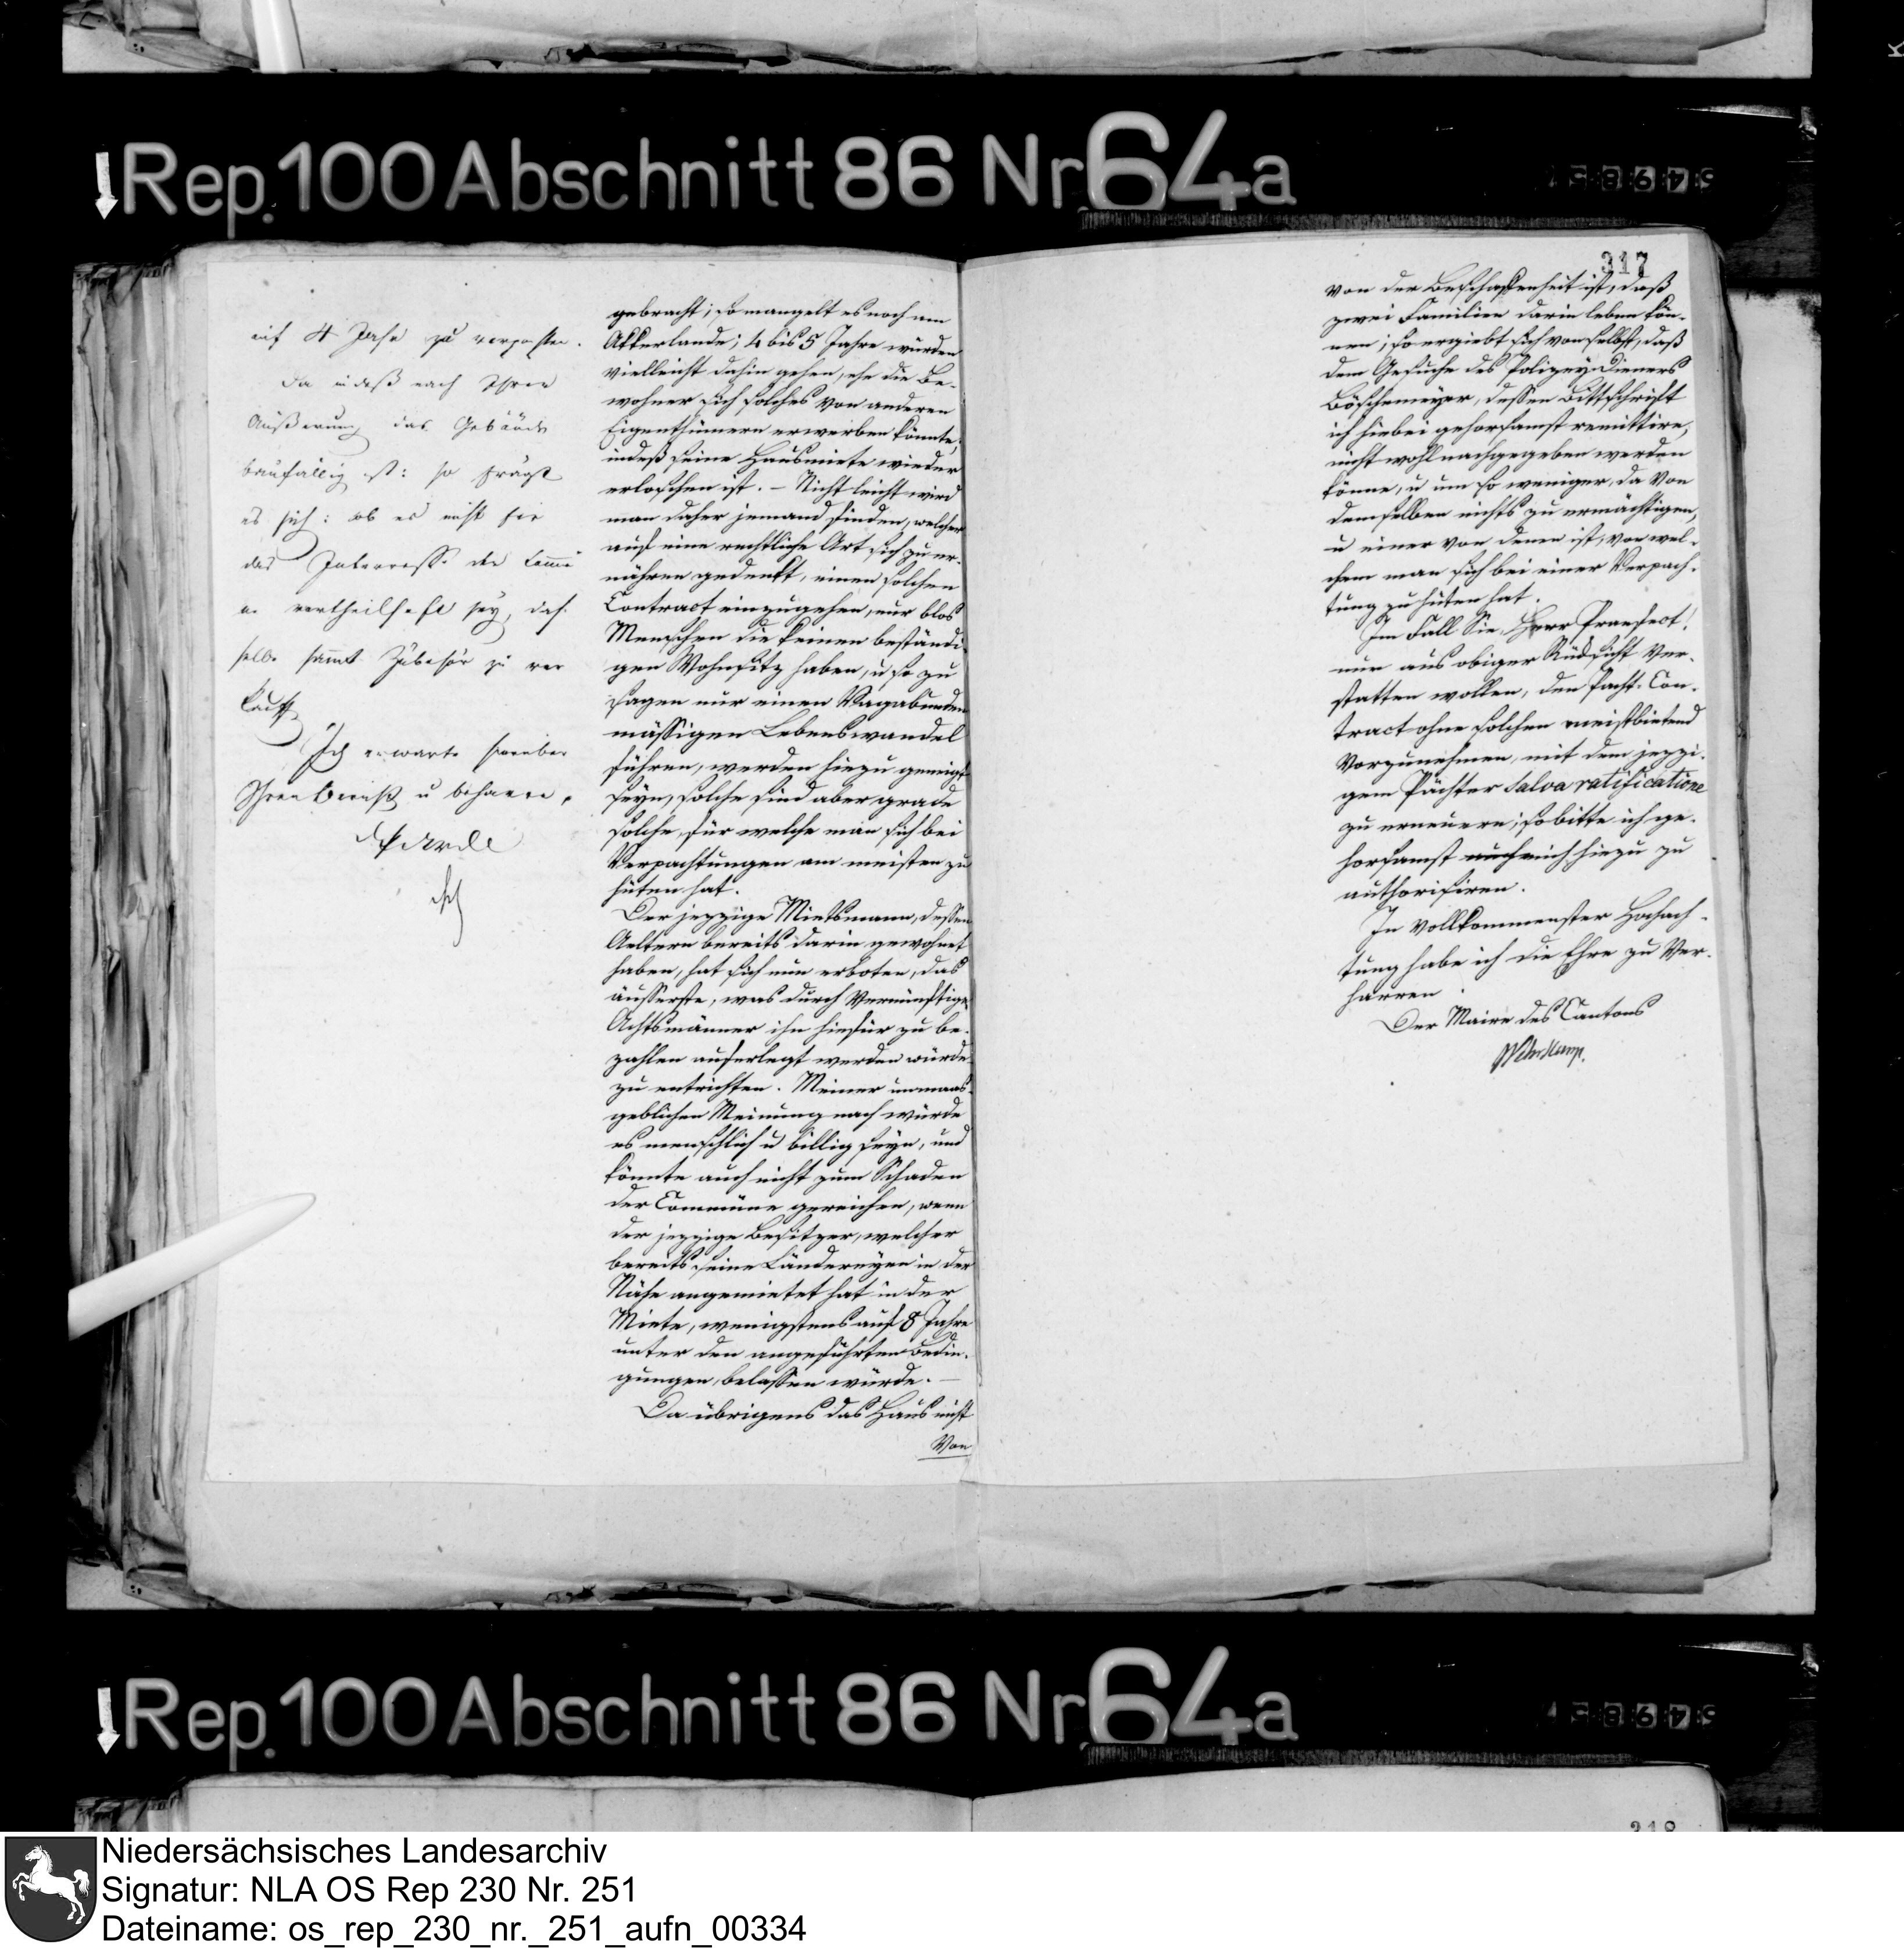 Rep. 100 Abschnitt 86 Nr. 64a
auf 4 Jahre zu verpachten.
Da indeß nach Ihrer
Äußerung das Gebäude
baufällig ist: so frägt
es sich: ob es nicht für
das Interesse der Commü
ne vortheilhaft sey, das
selbe sammt Zubehör zu ver
kaufen
Ich erwarte hierüber
Ihren Bericht u beharre,
gebracht; so mangelt es noch am
Akkerlande; 4 bis 5 Jahre würden
vielleicht dahin gehen, ehe die Be-
wohner sich solches von anderen
Eigenthümern erwerben könnte,
indeß seine Hausmiete wieder
erloschen ist. – Nicht leicht wird
man daher jemand finden, welcher
auf eine rechtliche Art sich zu er-
nähren gedenkt, einen solchen
Contract einzugehen, nur blos
Menschen die keinen beständi-
gen Wohnsitz haben, u so zu
sagen nur einen Vagabunden
mässigen Lebenswandel
führen, werden hiezu geneigt
seyn, solche sind aber grade
solche, für welche man sich bei
Verpachtungen am meisten zu
hüten hat.
Der jezzige Mietsmann, dessen
Aeltern bereits darin gewohnet
haben, hat sich nun erboten, das
äusserste, was durch vernünftige
Achtsmänner ihn hiefür zu be-
zahlen auferlegt werden würde
zu entrichten. Meiner unmaas-
geblichen Meinung nach würde
es menschlich u billig seyn, und
könnte auch nicht zum Schaden
der Commüne gereichen, wenn
der jezzige Besitzer, welcher
bereits seine Ländereyen in der
Nähe angemietet hat in der
Miete, wenigstens auf 8 Jahre
unter den angeführten Bedin-
gungen, belassen würde. –
Da übrigens das Haus nicht
Von
317
von der Beschaffenheit ist, daß
zwei Familien darin leben kön-
nen; so ergiebt sich von selbst, daß
dem Gesuche des Polizey Dieners
Böschemeyer, dessen Bittschrift
ich hiebei gehorsamst remittire,
nicht wohl nachgegeben werden
könne, u um so weniger, da von
demselben nichts zu ermächtigen,
u einer von denen ist, vor wel-
chem man sich bei einer Verpach-
tung zu hüten hat.
Im Fall Sie, Herr Praefect!
nur aus obiger Rücksicht ver-
statten wollen, den Pacht-Con-
tract ohne solchen meistbietend
vorzunehmen, mit dem jezzi-
gem Pächter salva ratificatione
zu erneuern; so bitte ich ge-
horsamst mich hiezu zu
authorisiren.
In vollkommenster Hochach-
tung habe ich die Ehre zu ver-
harren
Der Maire des Cantons
Wehrkamp.
Rep. 100 Abschnitt 86 Nr. 64a
Niedersächsisches Landesarchiv
Signatur: NLA OS Rep 230 Nr. 251
Dateiname: os_rep_230_nr._251_aufn_00334